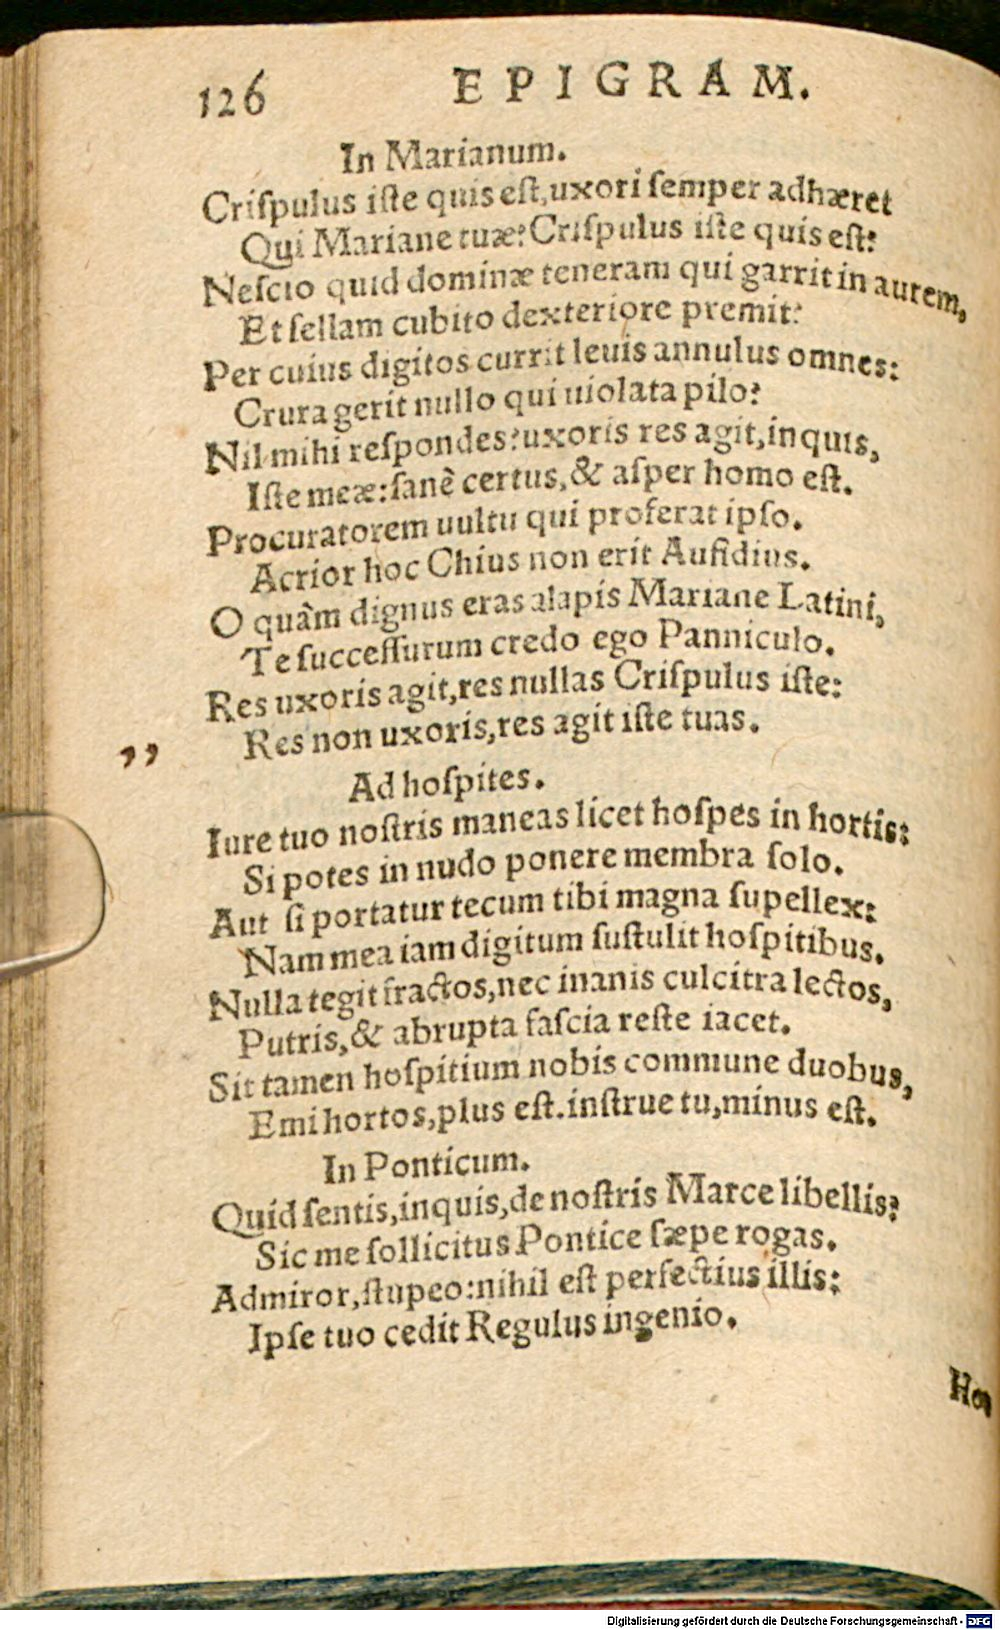 126 EPIGRAM.
In Marianum.
Criſpulus iſte quis eſt, uxori ſemper adhæret
Qui Mariane tuæ? Criſpulus iſte quis eſt?
Neſcio quid dominæ teneram qui garrit in aurem,
Et ſellam cubito dexteriore premit?
Per cuius digitos currit leuis annulus omnes:
Crura gerit nullo qui uiolata pilo?
Nil mihi reſpondes? uxoris res agit, inquis,
Iſte meæ: ſanè certus, & aſper homo eſt.
Procuratorem uultu qui proferat ipſo.
Acrior hoc Chius non erit Aufidius.
O quàm dignus eras alapis Mariane Latini,
Te ſucceſſurum credo ego Panniculo.
Res uxoris agit, res nullas Criſpulus iſte:
,, Res non uxoris, res agit iſte tuas.
Ad hoſpites.
Iure tuo noſtris maneas licet hoſpes in hortis:
Si potes in nudo ponere membra ſolo.
Aut ſi portatur tecum tibi magna ſupellex:
Nam mea iam digitum ſuſtulit hoſpitibus.
Nulla tegit fractos, nec inanis culcitra lectos,
Putris, & abrupta faſcia reſte iacet.
Sit tamen hoſpitium nobis commune duobus,
Emi hortos, plus eſt. inſtrue tu, minus eſt.
In Ponticum.
Quid ſentis, inquis, de noſtris Marce libellis?
Sic me ſollicitus Pontice ſæpe rogas.
Admiror, ſtupeo: nihil eſt perfectius illis:
Ipſe tuo cedit Regulus ingenio.
Hoc
Digitalisierung gefördert durch die Deutsche Forschungsgemeinschaft - DFG